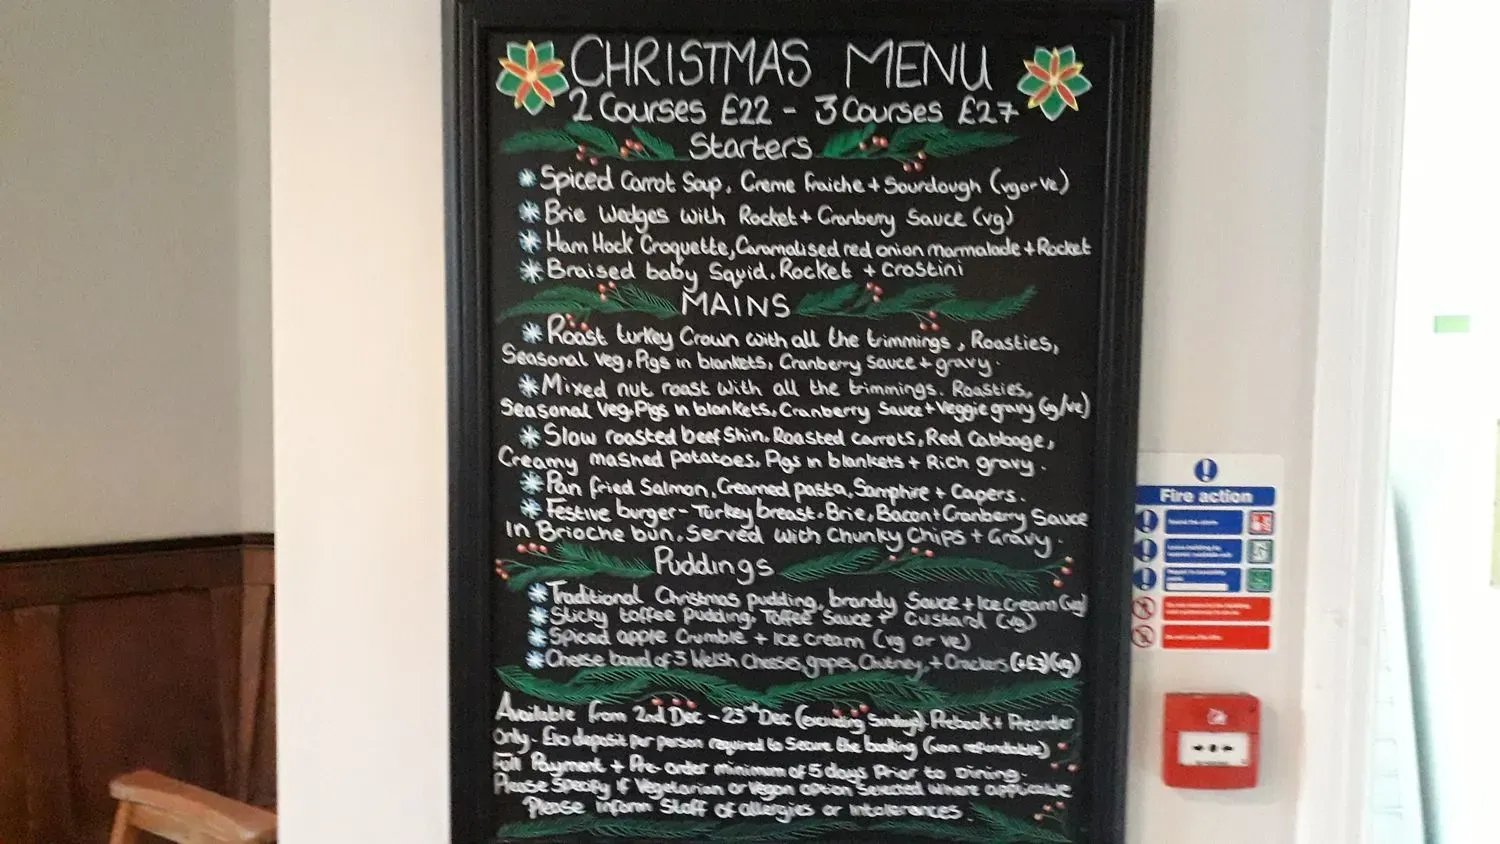 CHRISTMAS MENU
2 Courses £22 - 3 Courses £27
Starters
Spiced Carrot Soup, Creme fraiche + Sourdough (vg or ve)
Brie Wedges with Rocket + Cranberry Sauce (vg)
Ham Hock Croquette, Caramalised red onion marmalade + Rocket
Braised baby Squid, Rocket + Crostini
MAINS
Roast turkey Crown with all the trimmings, Roasties,
Seasonal Veg, Pigs in blankets, Cranberry Sauce + gravy.
Mixed nut roast with all the trimmings. Roasties,
Seasonal Veg, Pigs in blankets, Cranberry Sauce + Veggie gravy (vg/ve)
Slow roasted beef Shin, Roasted carrots, Red Cabbage,
Creamy mashed potatoes, Pigs in blankets + Rich gravy.
Pan fried Salmon, Creamed pasta, Samphire + Capers.
Festive burger - Turkey breast, Brie, Bacon + Cranberry Sauce
in Brioche bun, Served with Chunky Chips + Gravy.
Puddings
Traditional Christmas pudding, brandy Sauce + Ice Cream (vg)
Sticky toffee Pudding, Toffee Sauce + Custard (vg)
Spiced apple Crumble + Ice cream (vg or ve)
Cheese board of 3 Welsh Cheeses, grapes, Chutney, + Crackers (+£3) (vg)
Available from 2nd Dec - 23rd Dec (excluding Sundays). Prebook + Preorder
Only. £10 deposit per person required to Secure the booking (non refundable)
Full Payment + Pre-order minimum of 5 days Prior to Dining.
Please Specify if Vegetarian or Vegan option Selected Where applicable
Please inform Staff of allergies or intolerances.
Fire action